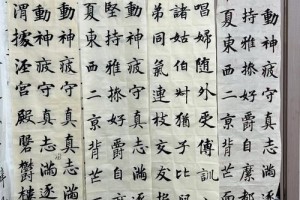 動神疲守真志滿
堅持雅操好爵自縻都
夏東西二京背芒面
唱婦隨外受傅訓
諸姑伯叔猶子比
弟同氣連枝交友投
動神疲守真志滿逐
堅持雅操好爵自
夏東西二京背芒面
動神疲守真志滿
渭據涇宮殿磐鬱樓